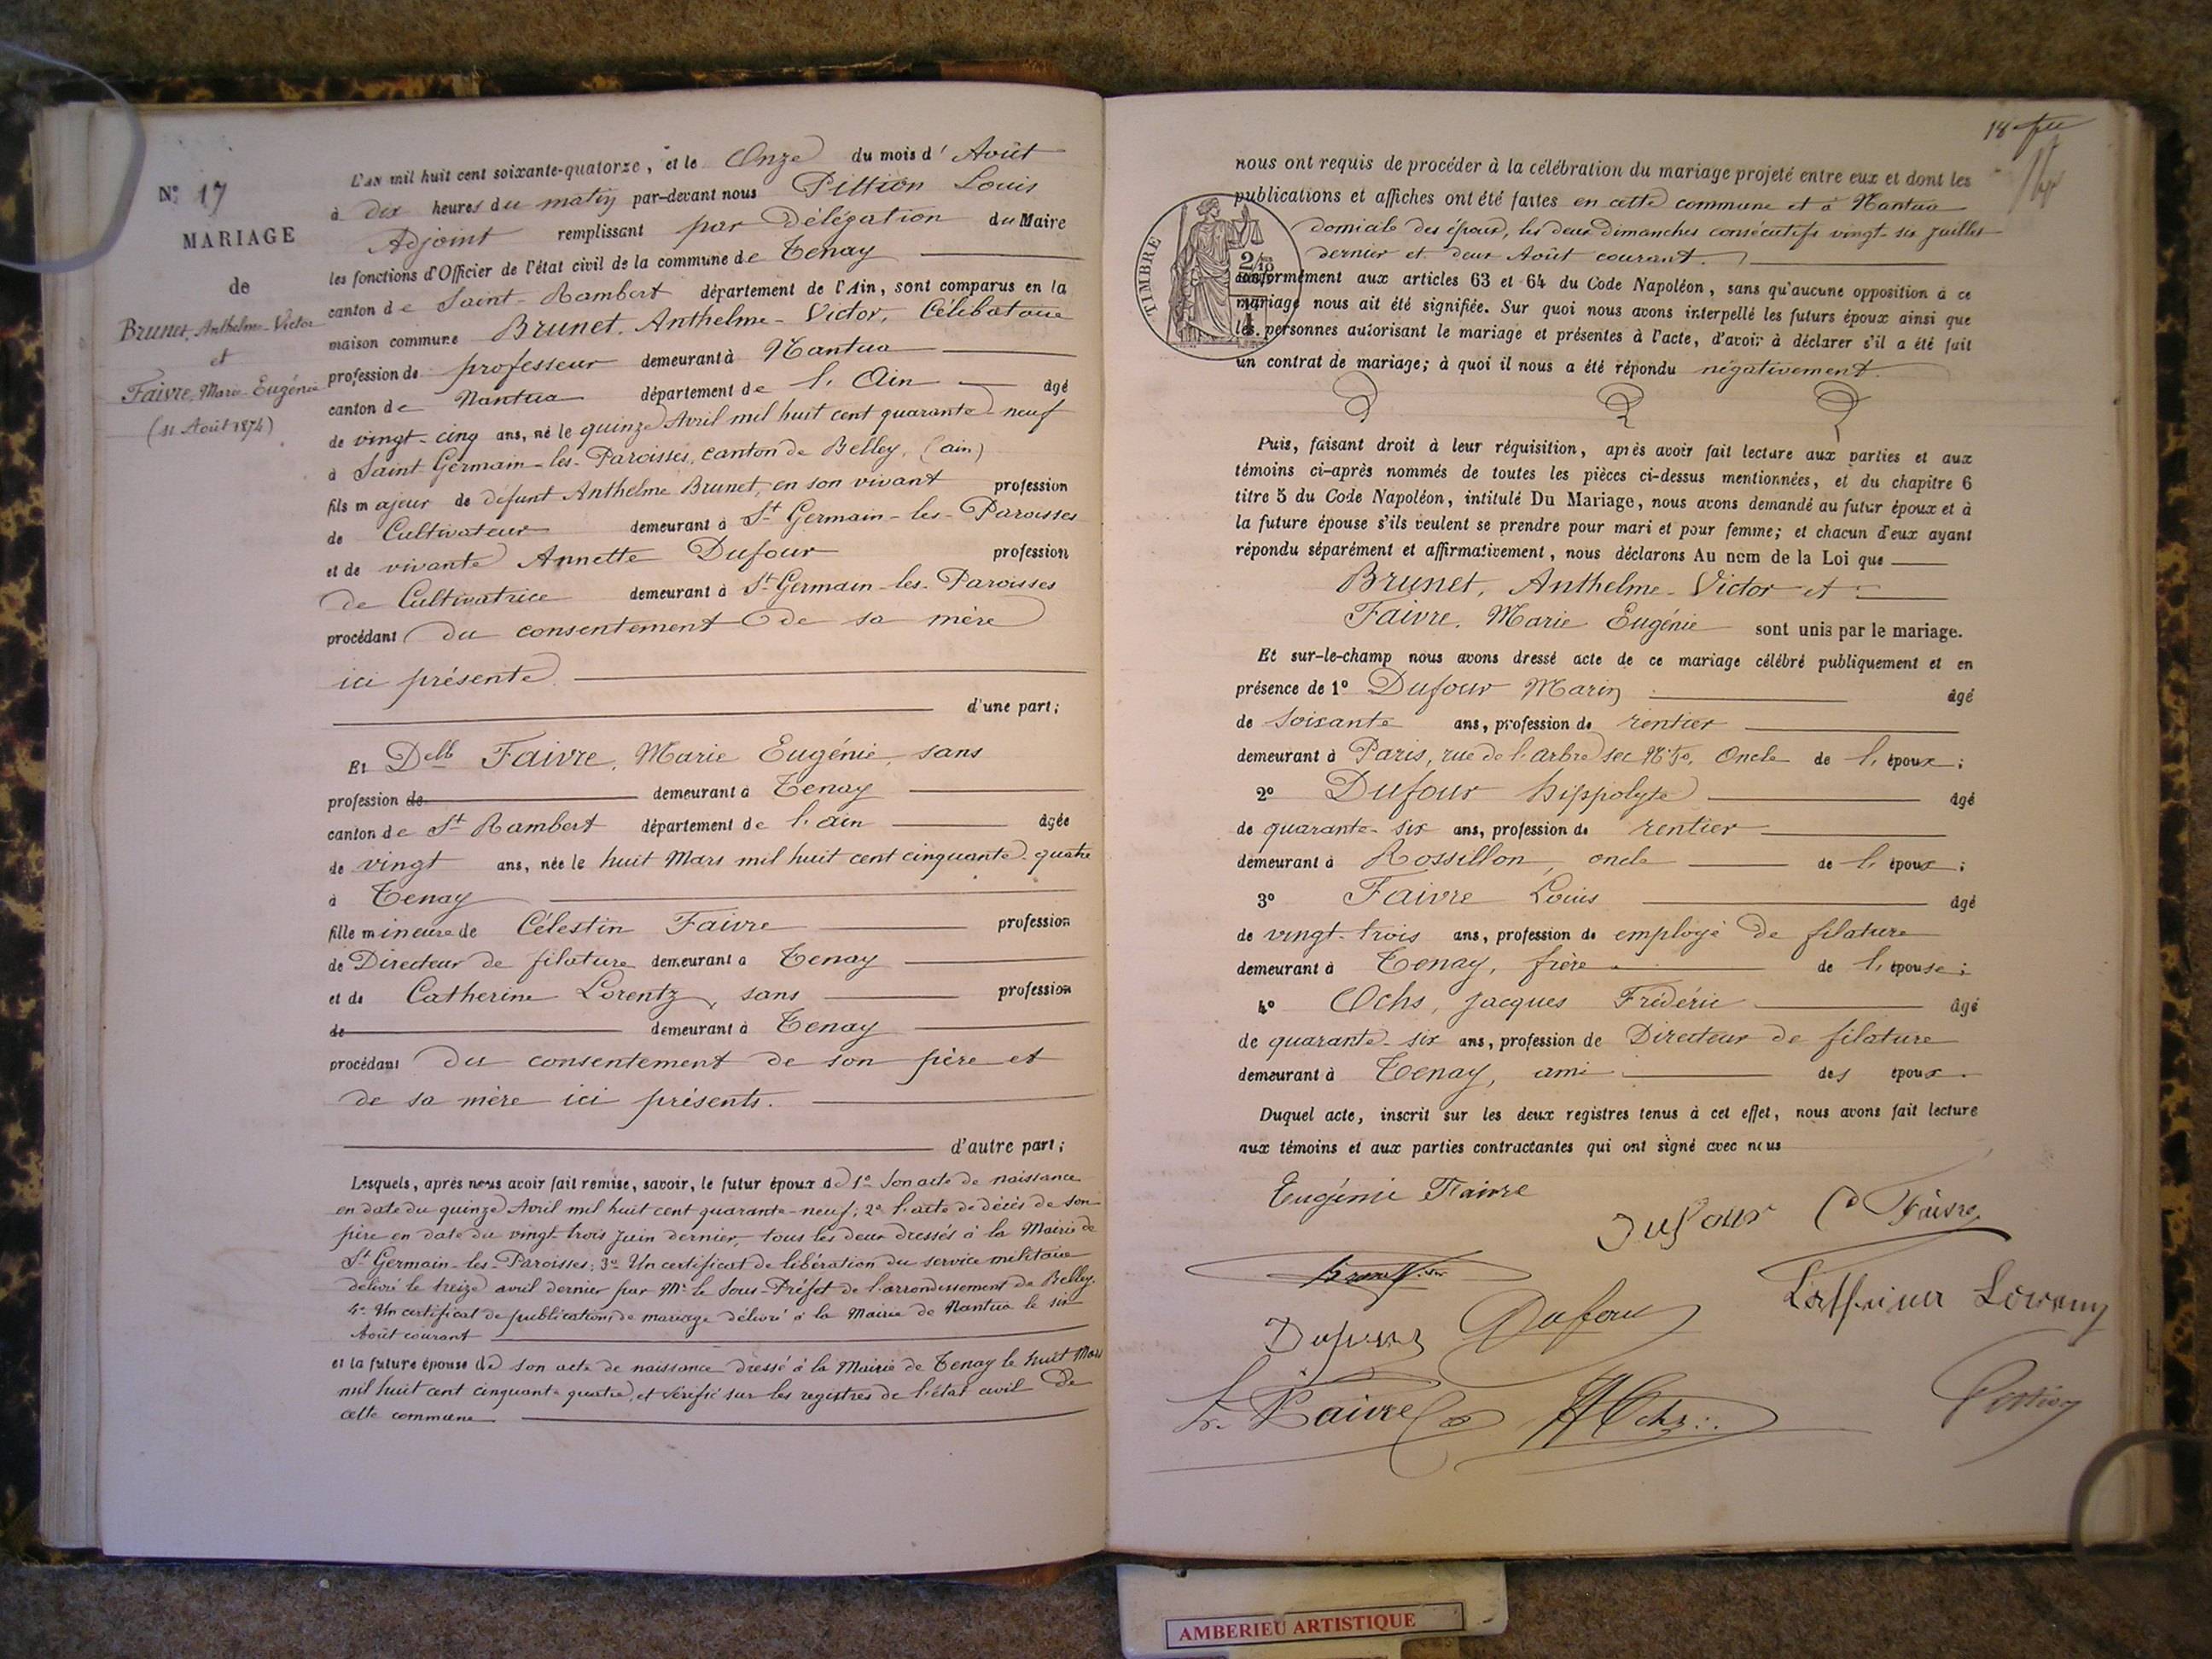 N° 17
MARIAGE
de
Brunet, Anthelme-Victor
et
Faivre, Marie-Eugénie
(11 Août 1874)
L'AN mil huit cent soixante-quatorze, et le Onze du mois d'Août
à dix heures du matin par-devant nous Pittion Louis
Adjoint remplissant par Délégation du Maire
les fonctions d'Officier de l'état civil de la commune de Tenay
canton de Saint-Rambert département de l'Ain, sont comparus en la
maison commune Brunet, Anthelme-Victor, Célibataire
profession de professeur demeurant à Nantua
canton de Nantua département de l'Ain âgé
de vingt-cinq ans, né le quinze Avril mil huit cent quarante neuf
à Saint-Germain-les-Paroisses, canton de Belley, (ain)
fils majeur de défunt Anthelme Brunet, en son vivant profession
de Cultivateur demeurant à St Germain-les-Paroisses
et de vivante Annette Dufour profession
de Cultivatrice demeurant à St Germain-les-Paroisses
procédant du consentement de sa mère
ici présente
d'une part;
Et Delle Faivre, Marie Eugénie, sans
profession de demeurant à Tenay
canton de St Rambert département de l'ain âgée
de vingt ans, née le huit Mars mil huit cent cinquante-quatre
à Tenay
fille mineure de Célestin Faivre profession
de Directeur de filature demeurant à Tenay
et de Catherine Lorentz, sans profession
de demeurant à Tenay
procédant du consentement de son père et
de sa mère ici présents.
d'autre part;
Lesquels, après nous avoir fait remise, savoir, le futur époux de 1° Son acte de naissance
en date du quinze Avril mil huit cent quarante-neuf; 2° l'acte de décès de son
père en date du vingt trois Juin dernier, tous les deux dressés à la Mairie de
St Germain-les-Paroisses; 3° Un certificat de libération du service militaire
délivré le treize avril dernier par Mr le Sous-Préfet de l'arrondissement de Belley.
4° Un certificat de publications de mariage délivré à la Mairie de Nantua le six
Août courant
et la future épouse de son acte de naissance dressé à la Mairie de Tenay le huit Mars
mil huit cent cinquante quatre, et vérifié sur les registres de l'état civil de
cette commune
18
nous ont requis de procéder à la célébration du mariage projeté entre eux et dont les
publications et affiches ont été faites en cette commune et à Nantua
domicile des époux, les deux Dimanches consécutifs vingt-six Juillet
dernier et deux Août courant.
TIMBRE
2/10
conformément aux articles 63 et 64 du Code Napoléon, sans qu'aucune opposition à ce
mariage nous ait été signifiée. Sur quoi nous avons interpellé les futurs époux ainsi que
les personnes autorisant le mariage et présentes à l'acte, d'avoir à déclarer s'il a été fait
un contrat de mariage; à quoi il nous a été répondu négativement.
Puis, faisant droit à leur réquisition, après avoir fait lecture aux parties et aux
témoins ci-après nommés de toutes les pièces ci-dessus mentionnées, et du chapitre 6
titre 5 du Code Napoléon, intitulé Du Mariage, nous avons demandé au futur époux et à
la future épouse s'ils veulent se prendre pour mari et pour femme; et chacun d'eux ayant
répondu séparément et affirmativement, nous déclarons Au nom de la Loi que
Brunet, Anthelme-Victor et
Faivre, Marie Eugénie sont unis par le mariage.
Et sur-le-champ nous avons dressé acte de ce mariage célébré publiquement et en
présence de 1° Dufour Marin âgé
de soixante ans, profession de rentier
demeurant à Paris, rue de l'arbre sec N° 50, Oncle de l'époux;
2° Dufour hippolyte âgé
de quarante-six ans, profession de rentier
demeurant à Rossillon, oncle de l'époux;
3° Faivre Louis âgé
de vingt-trois ans, profession de employé de filature
demeurant à Tenay, frère de l'épouse;
4° Ochs, Jacques Frédéric âgé
de quarante-six ans, profession de Directeur de filature
demeurant à Tenay, ami des époux.
Duquel acte, inscrit sur les deux registres tenus à cet effet, nous avons fait lecture
aux témoins et aux parties contractantes qui ont signé avec nous
Eugénie Faivre
Dufour C Faivre
Dufour Dufour
L. Faivre Ochs
Pittion
AMBERIEU ARTISTIQUE